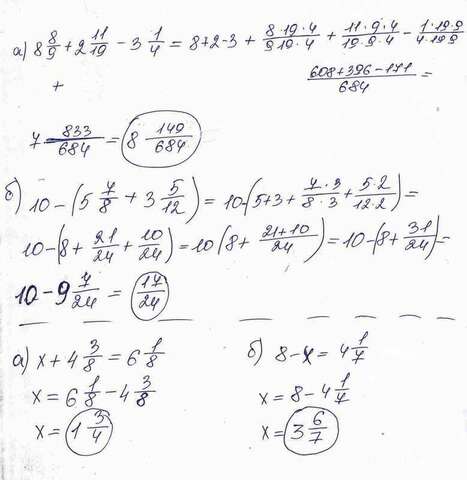 а) 8 8/9 + 2 11/19 - 3 1/4 = 8+2-3 + 8·19·4/9·19·4 + 11·9·4/19·9·4 - 1·19·9/4·19·9
+ 608+396-171/684 =
7 833/684 = 8 149/684
б) 10-(5 7/8 + 3 5/12) = 10-(5+3+ 7·3/8·3 + 5·2/12·2) =
10-(8+ 21/24 + 10/24) = 10(8+ 21+10/24) = 10-(8+ 31/24) =
10-9 7/24 = 17/24
а) x+4 3/8 = 6 1/8
x = 6 1/8 - 4 3/8
x = 1 3/4
б) 8-x = 4 1/7
x = 8-4 1/7
x = 3 6/7